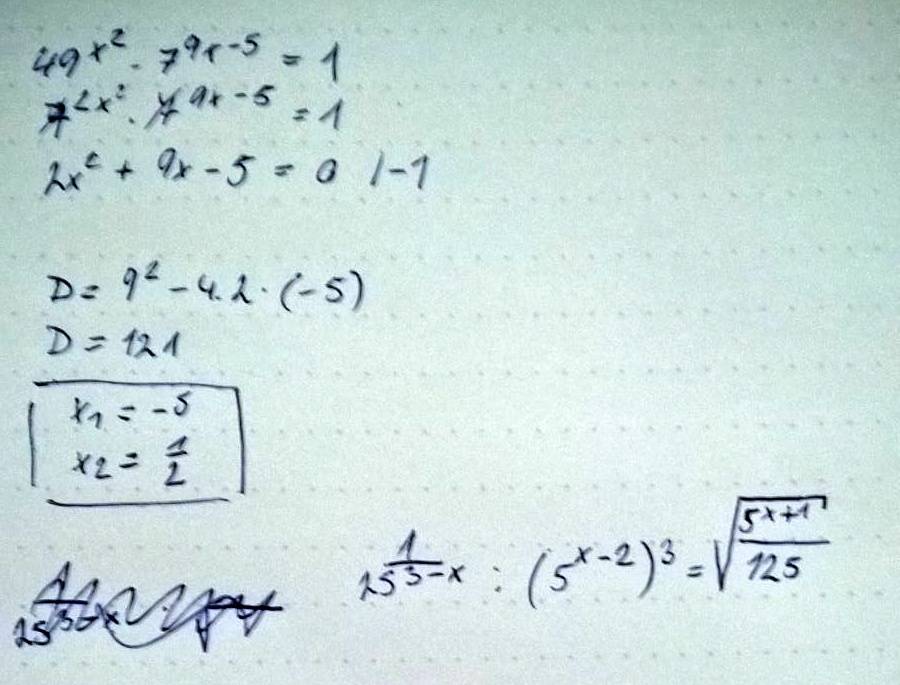 49^{x^2} \cdot 7^{9x-5} = 1
7^{2x^2} \cdot 7^{9x-5} = 1
2x^2 + 9x - 5 = 0 /-1
D = 9^2 - 4.2 \cdot (-5)
D = 121
x_1 = -5
x_2 = \frac{1}{2}
25^{\frac{1}{3}-x} : (5^{x-2})^3 = \sqrt{\frac{5^{x+1}}{125}}